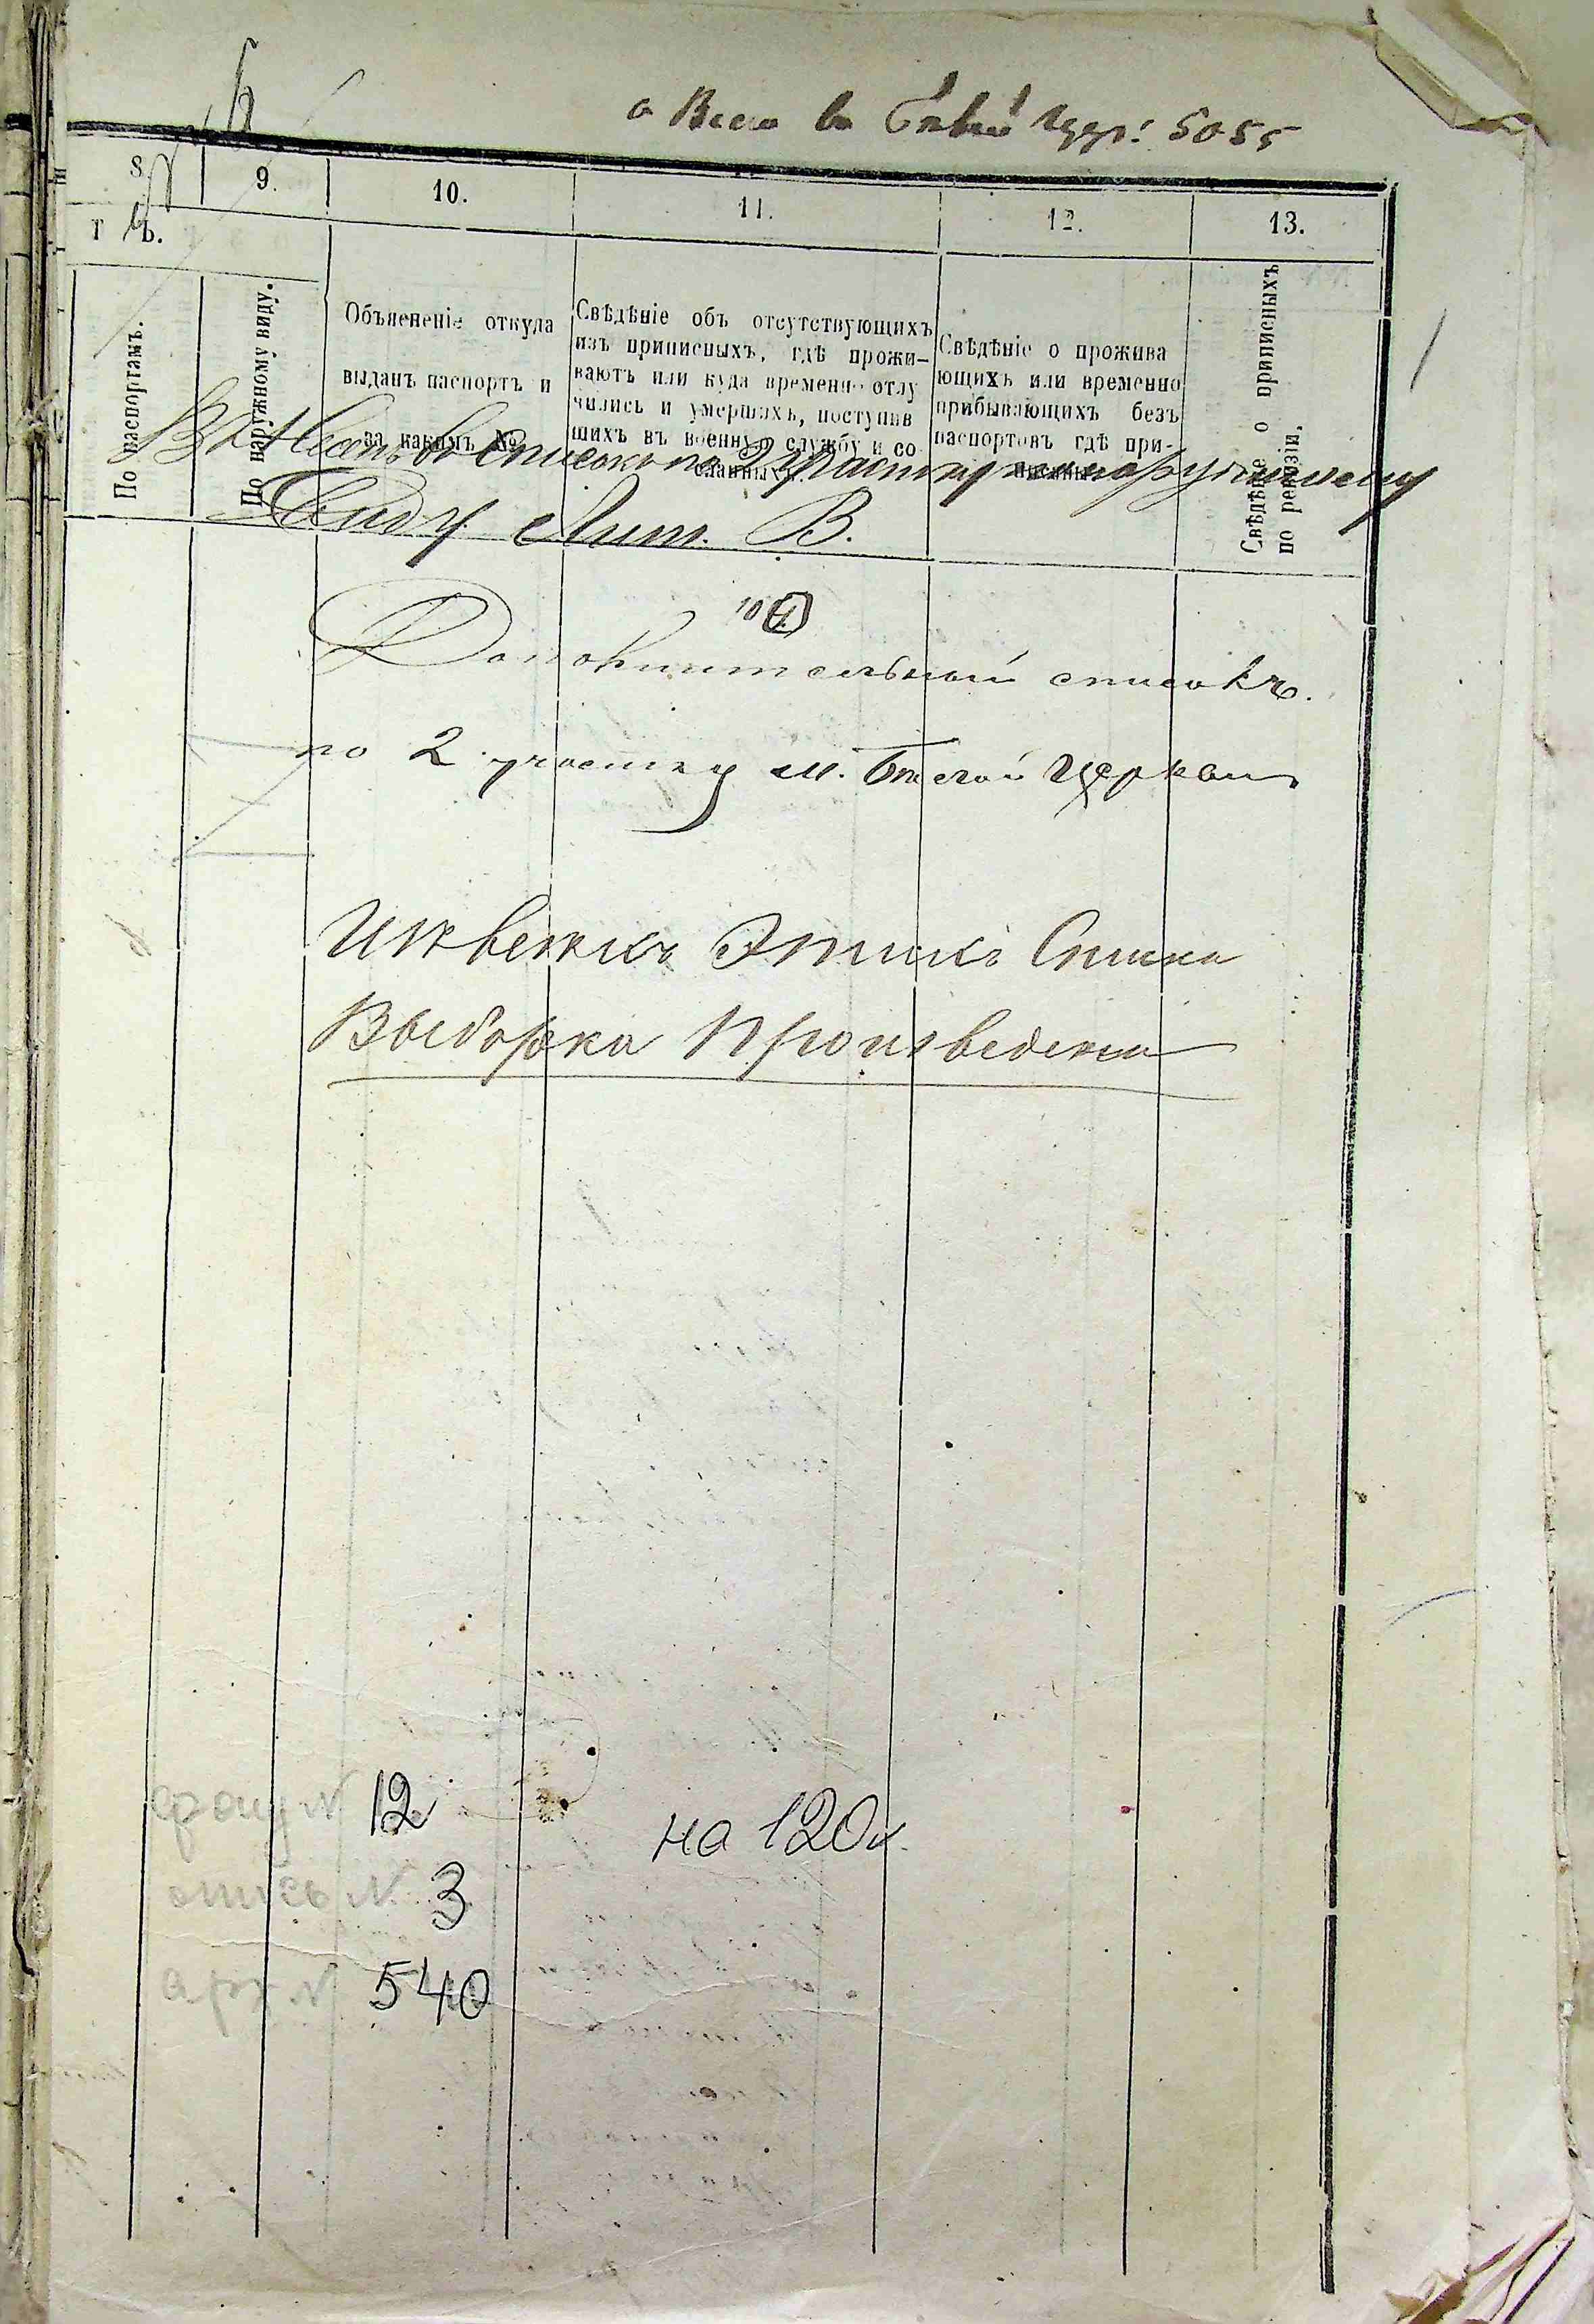 а Всего в Бѣлой Церк: 5055
8. 9. 10. 11. 12. 13.
Т Ъ.
По паспортамъ.
По наружному виду.
Объясненіе откуда
выданъ паспортъ и
за какимъ №
Свѣдѣніе объ отсутствующихъ
изъ приписныхъ, гдѣ прожи-
ваютъ или куда временно отлу
чились и умершихъ, поступив
шихъ въ военную службу и со
сланныхъ.
Свѣдѣніе о прожива
ющихъ или временно
прибывающихъ безъ
паспортовъ гдѣ при-
Свѣдѣніе о приписныхъ
по ревизіи.
списокъ по наружному
Виду Лит. В.
10
Дополнительный списокъ.
по 2 участку м. Бѣлой Церкви
Списка
Выборка Произведена
фонд N 12
на 120
опись N. 3
арх N 540